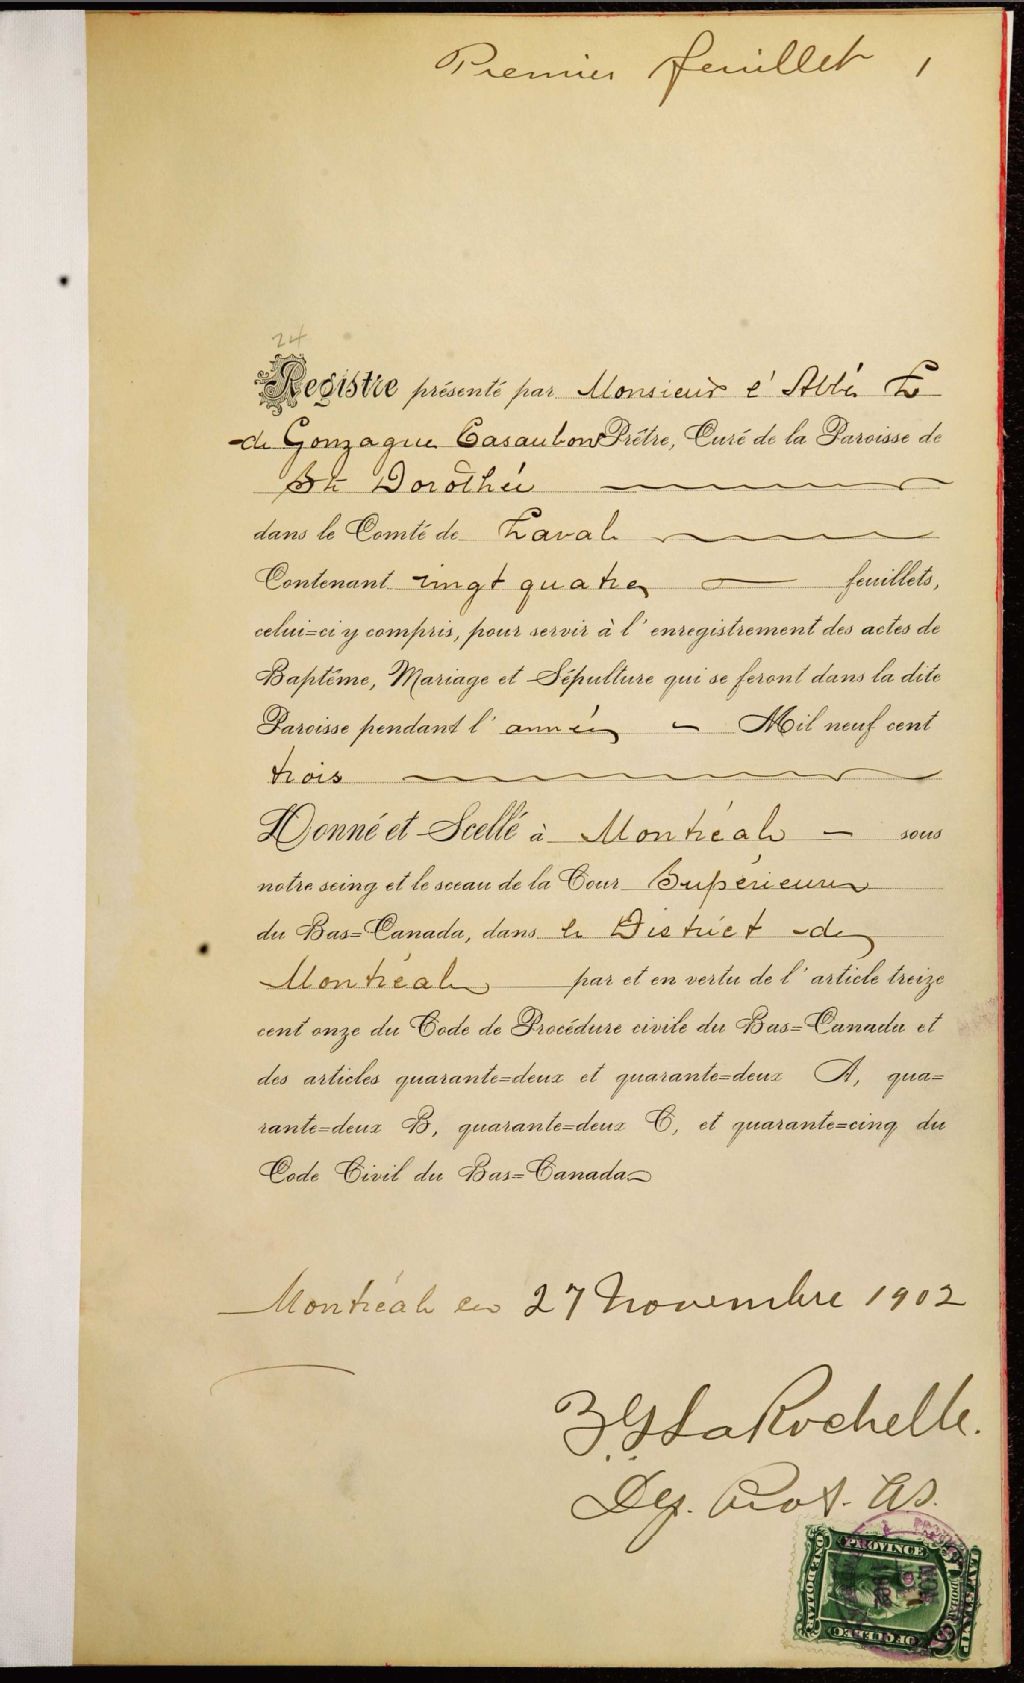 Premier feuillet 1
24
Registre présenté par Monsieur l'Abbé L
de Gonzague Casaubon Prêtre, Curé de la Paroisse de
Ste Dorothée
dans le Comté de Laval
Contenant vingt quatre feuillets,
celui=ci y compris, pour servir à l'enregistrement des actes de
Baptême, Mariage et Sépulture qui se feront dans la dite
Paroisse pendant l'année Mil neuf cent
trois
Donné et Scellé à Montréal sous
notre seing et le sceau de la Cour Supérieure
du Bas=Canada, dans le District de
Montréal par et en vertu de l'article treize
cent onze du Code de Procédure civile du Bas=Canada et
des articles quarante=deux et quarante=deux A, qua=
rante=deux B, quarante=deux C, et quarante=cinq du
Code Civil du Bas=Canada
Montréal ce 27 Novembre 1902
LaRochelle.
Dep. Prot. CS.
PROVINCE
OF QUEBEC
ONE DOLLAR
LAW STAMP